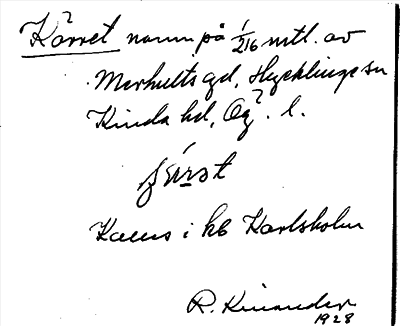 Kärret namn på 1/216 mtl. av
Merhults gd, Hycklinge sn
Kinda hd, Ög. l.
först
Kallas i kb Karlsholm
R. Kinander
1928